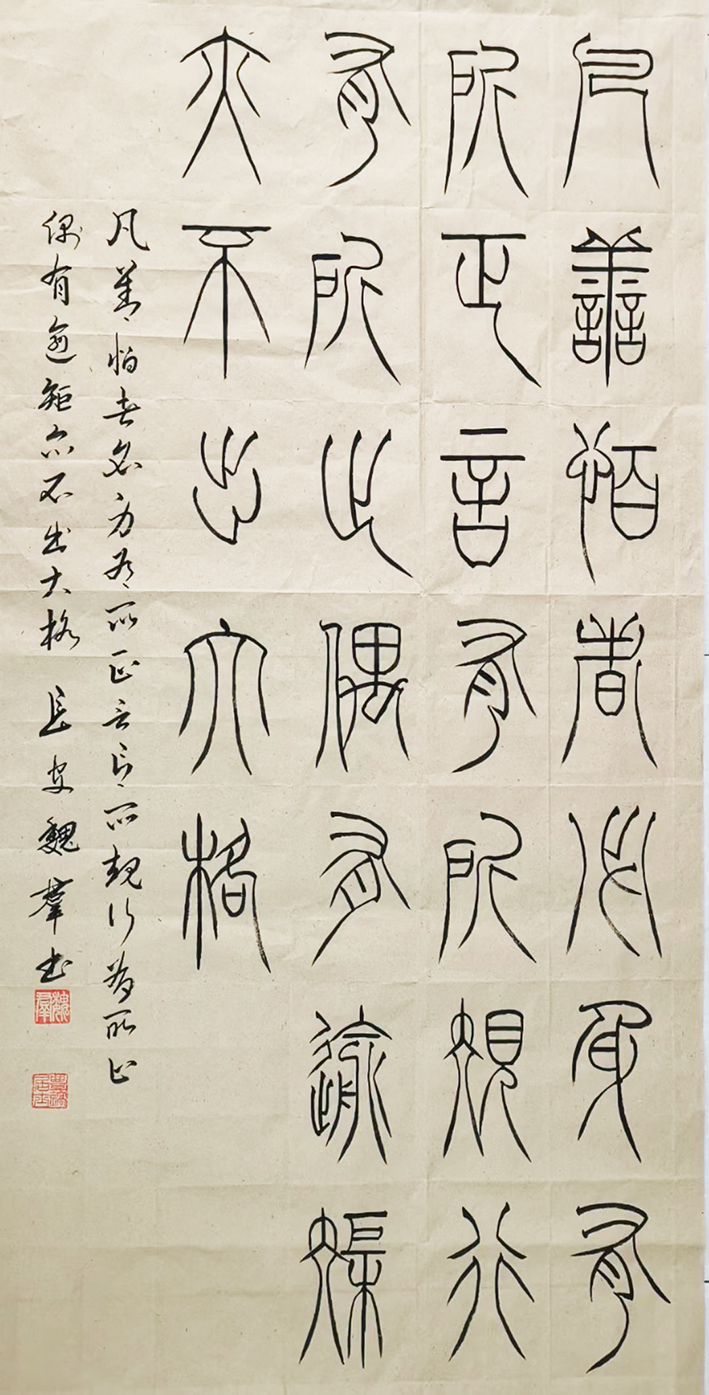 凡善怕者必身有
所正言有所規行
有所止偶有逾榘
亦不出大格
凡善怕者必身有所正言有所規行有所止
偶有逾矩亦不出大格 長安魏羣書
魏羣